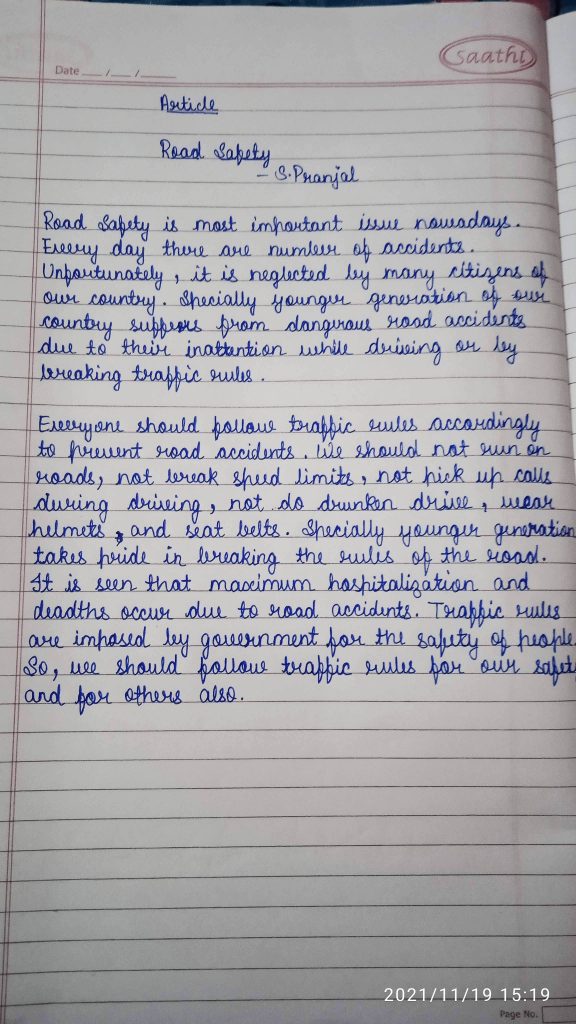 saathi
Date __/__/____
Article
Road Safety
- S. Pranjal
Road Safety is most important issue nowadays.
Every day there are number of accidents.
Unfortunately, it is neglected by many citizens of
our country. Specially younger generation of our
country suffers from dangrous road accidents
due to their inattantion while driving or by
breaking traffic rules.
Everyone should follow traffic rules accordingly
to prevent road accidents. We should not run on
roads, not break speed limits, not pick up calls
during driving, not do drunken drive, wear
helmets, and seat belts. Specially younger generation
takes pride in breaking the rules of the road.
It is seen that maximum hospitalization and
deadths occur due to road accidents. Traffic rules
are imposed by government for the safety of people.
So, we should follow traffic rules for our safety
and for others also.
2021/11/19 15:19
Page No.